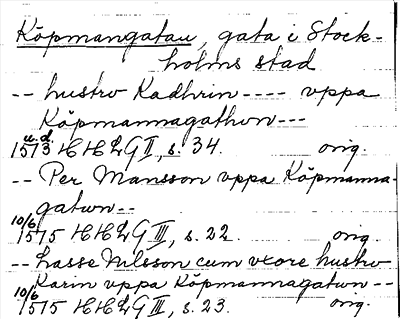 Köpmangatau, gata i Stock-
holms stad
-- hustro Kadhrin ---- vppa
Köpmannagathon ---
u.d.
1573 HHLG II, s. 34. orig.
-- Per Månsson vppa Köpmanna-
gatwn --
10/6
1515 HHLG III, s. 22. orig.
-- Lasse Nilsson cum vxore hustro
Karin vppa Köpmannagatwn --
10/6
1515 HHLG III, s. 23. orig.